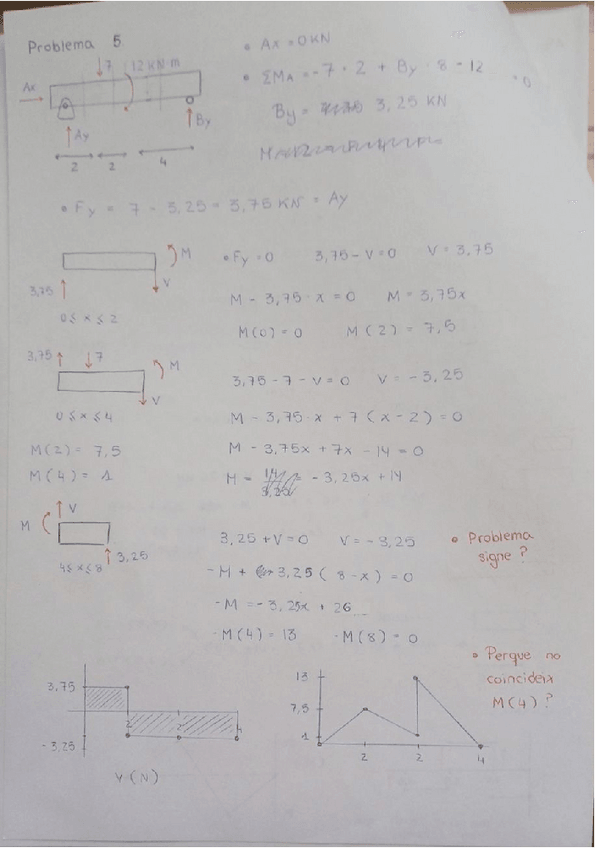 Problema 5.
• Ax = 0 KN
↓7 12 KN m
• ΣMA = -7 · 2 + By · 8 - 12 = 0
Ax
By = 3,25 KN
Ay
By
2 2 4
• Fy = 7 - 3,25 = 3,75 KN = Ay
M
V
3,75
0 ≤ x ≤ 2
• Fy = 0 3,75 - V = 0 V = 3,75
M - 3,75 · x = 0 M = 3,75x
M(0) = 0 M(2) = 7,5
3,75 ↑ ↓7
M
V
0 ≤ x ≤ 4
3,75 - 7 - V = 0 V = -3,25
M - 3,75 · x + 7 (x - 2) = 0
M(2) = 7,5
M - 3,75x + 7x - 14 = 0
M(4) = 1
M = - 3,25x + 14
V
M
3,25
4 ≤ x ≤ 8
3,25 + V = 0 V = -3,25
-M + 3,25 ( 8 - x ) = 0
-M = -3,25x + 26
-M(4) = 13 -M(8) = 0
• Problema
signe?
• Perque no
coincideix
M(4)?
3,75
-3,25
2 2 4
V(N)
13
7,5
1
2 2 4